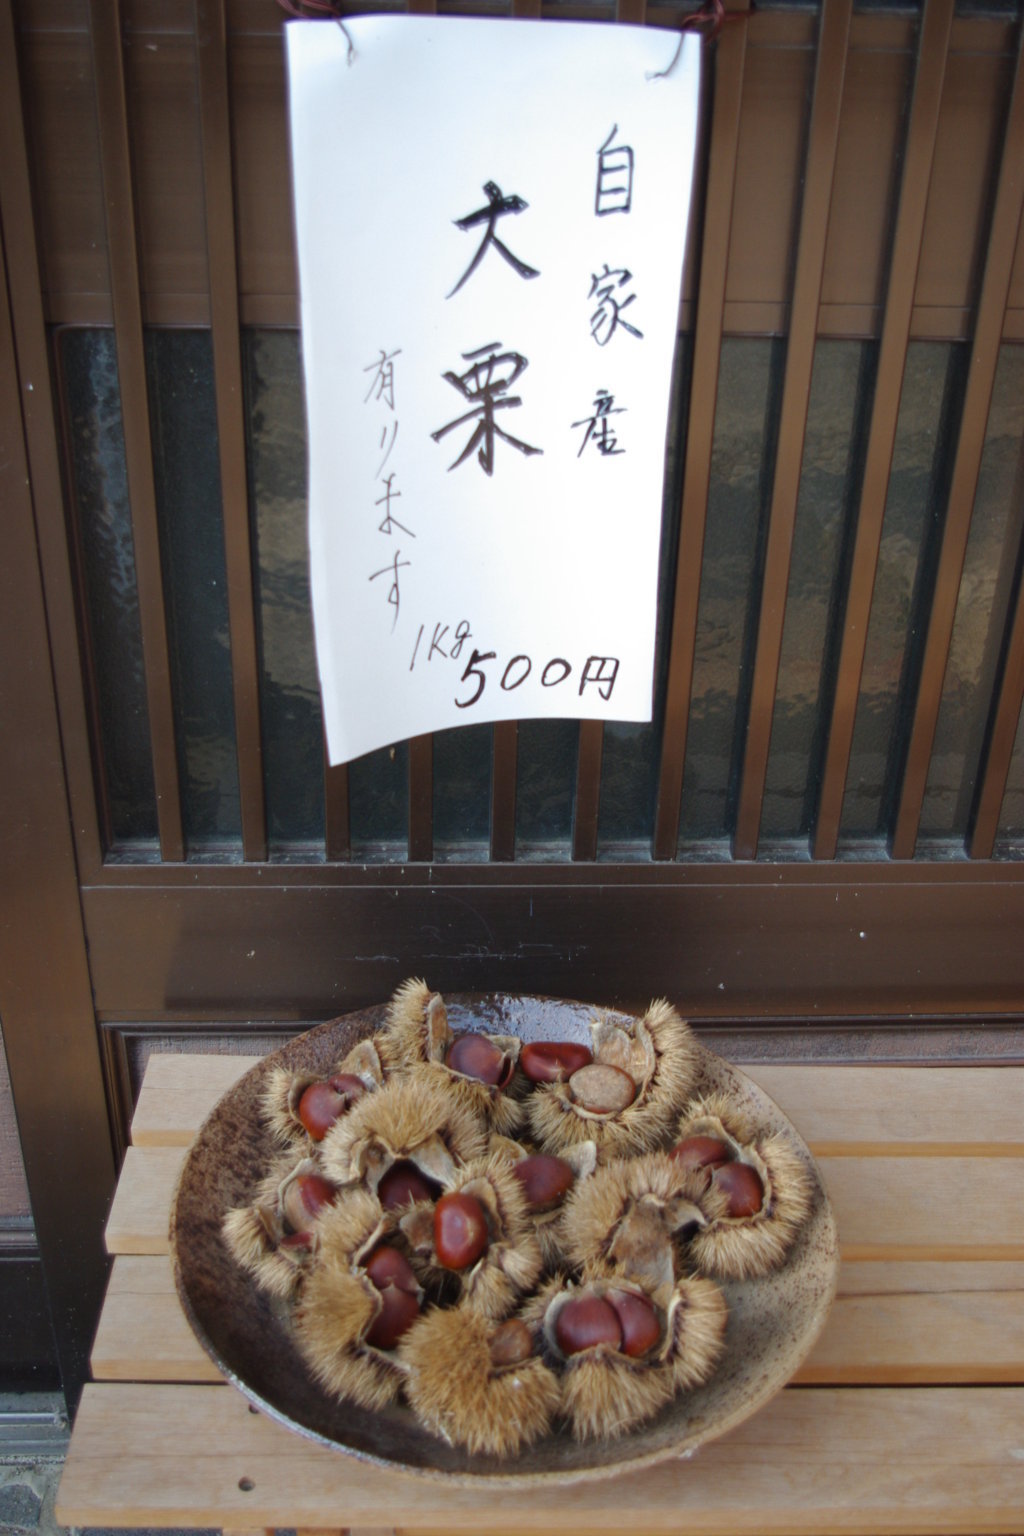 自家産
大栗
有リます
1Kg
500円